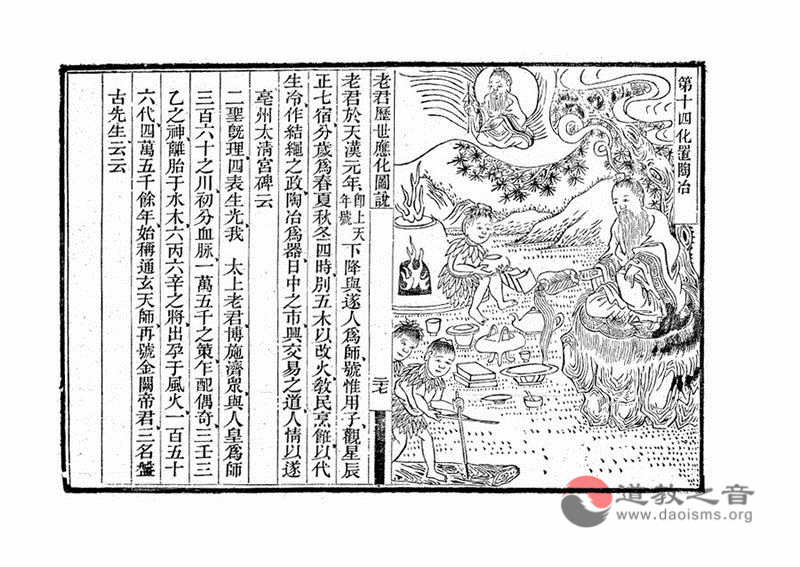 第十四化置陶冶
老君歷世應化圖說
老君於天漢元年即上天年號下降與遂人為師號惟用子觀星辰
正七宿分歲為春夏秋冬四時別五木以改火教民烹飪以代
生冷作結繩之政陶冶為器日中之市興交易之道人情以遂
亳州太清宮碑云
二聖旣理四表生光我 太上老君博施濟眾與人皇為師
三百六十之川初分血脉一萬五千之策乍配偶奇三壬三
乙之神離胎于水木六丙六辛之將出孕于風火一百五十
六代四萬五千餘年始稱通玄天師再號金闕帝君三名盤
古先生云云
道教之音
www.daoisms.org